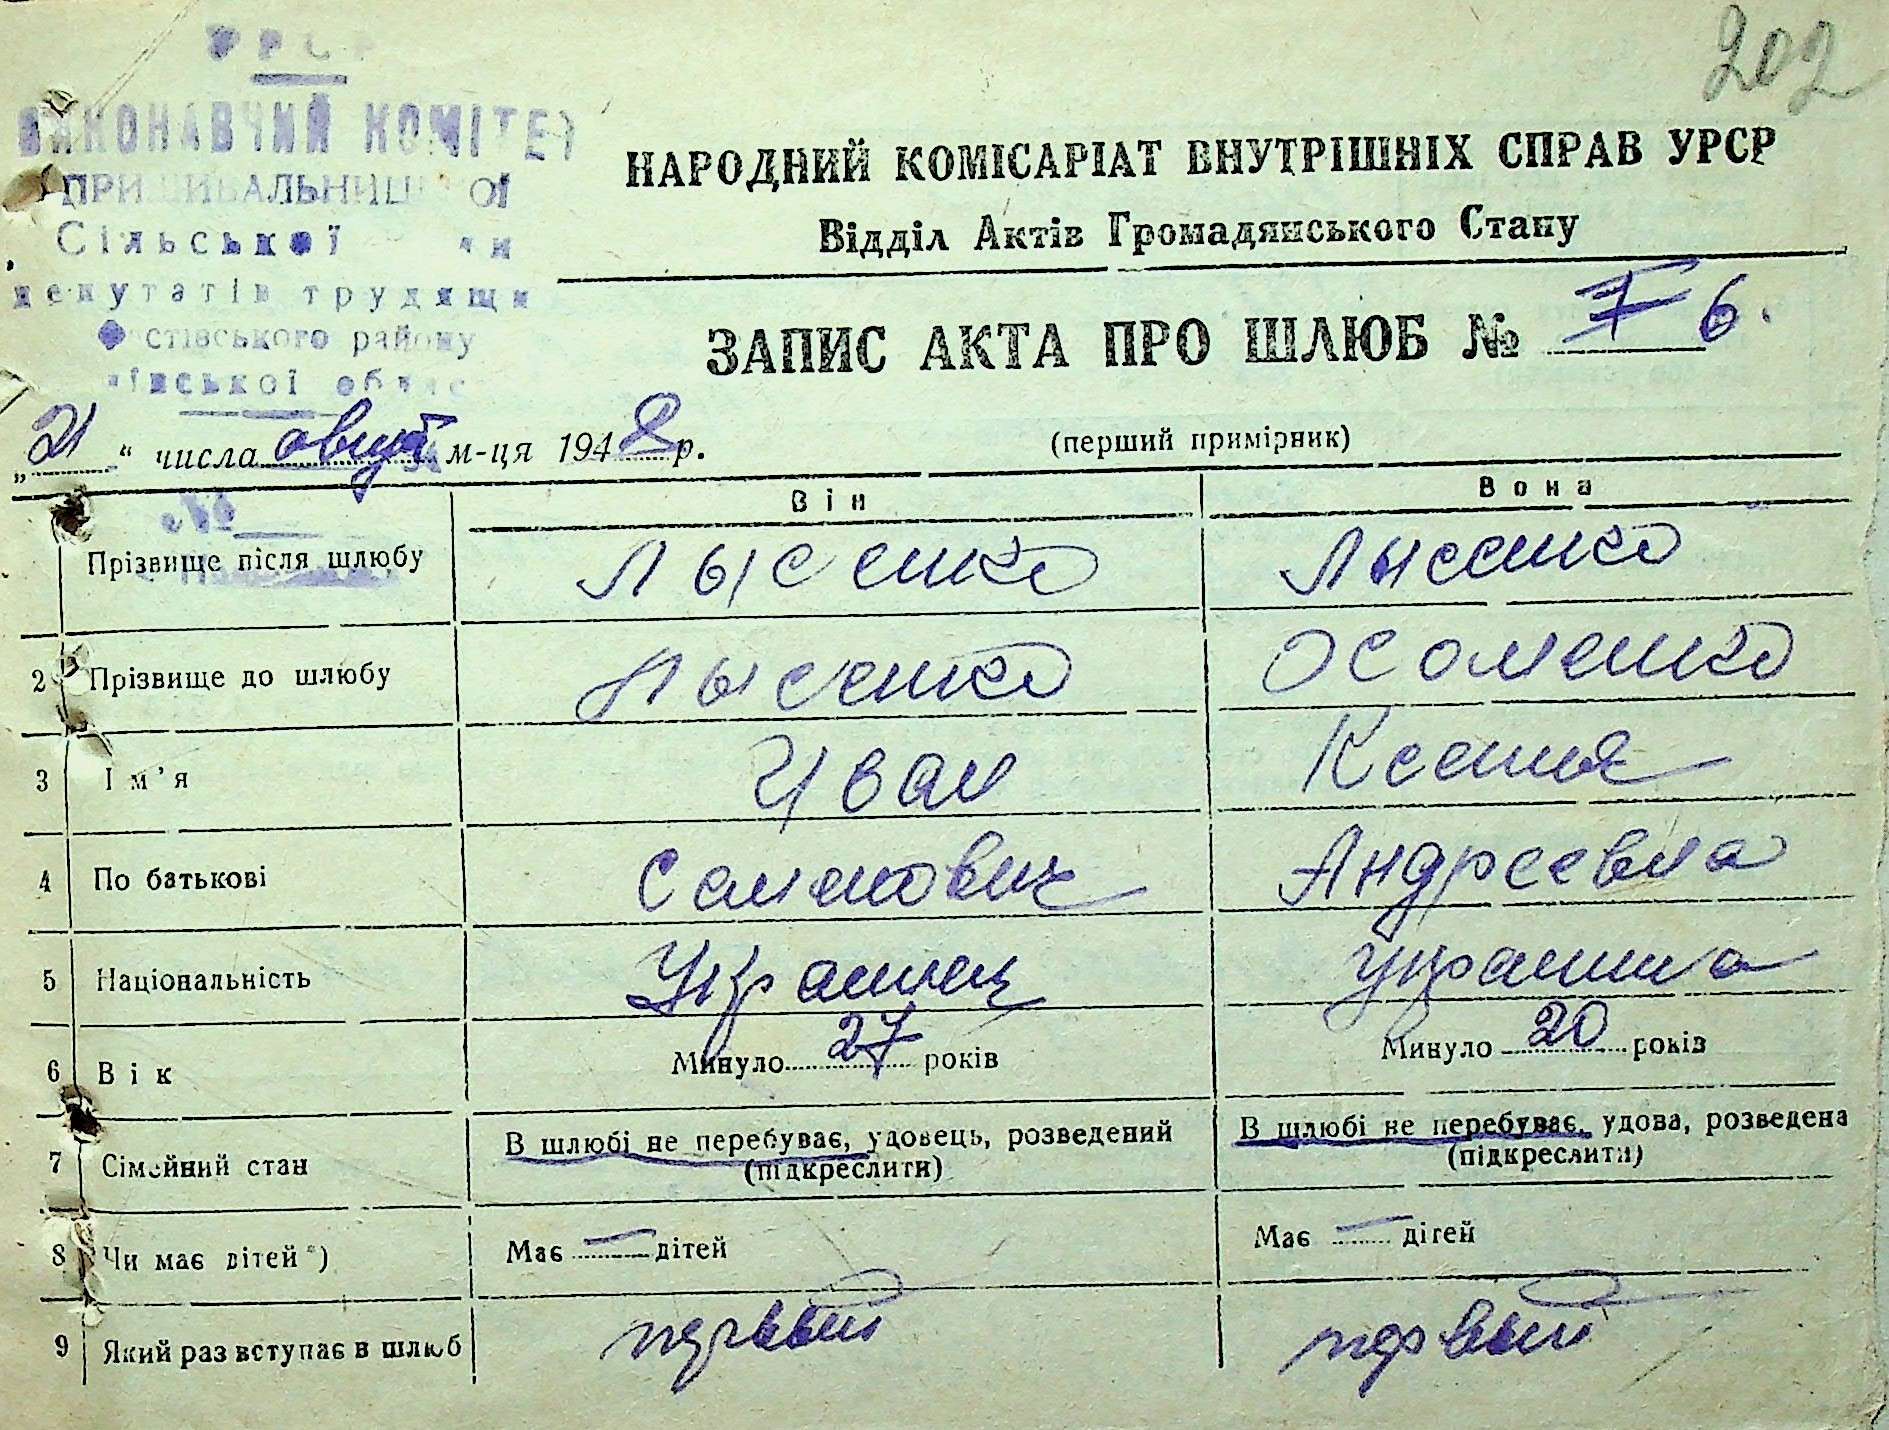 202
УРСР
ВИКОНАВЧИЙ КОМІТЕТ
Сільської
депутатів трудящи
Фастівського району
НАРОДНИЙ КОМІСАРІАТ ВНУТРІШНІХ СПРАВ УРСР
Відділ Актів Громадянського Стану
ЗАПИС АКТА ПРО ШЛЮБ № 6.
„21“ числа август м-ця 1948 р.
(перший примірник)
№
Він Вона
Прізвище після шлюбу Лысенко Лысенко
2 Прізвище до шлюбу Лысенко Осоменко
3 Ім’я Иван Ксения
4 По батькові Семенович Андреевна
5 Національність Украинец Украинка
6 Вік Минуло 27 років Минуло 20 років
7 Сімейний стан В шлюбі не перебуває, удовець, розведений В шлюбі не перебуває, удова, розведена
(підкреслити) (підкреслити)
8 Чи має дітей*) Має — дітей Має — дітей
9 Який раз вступає в шлюб первый первый